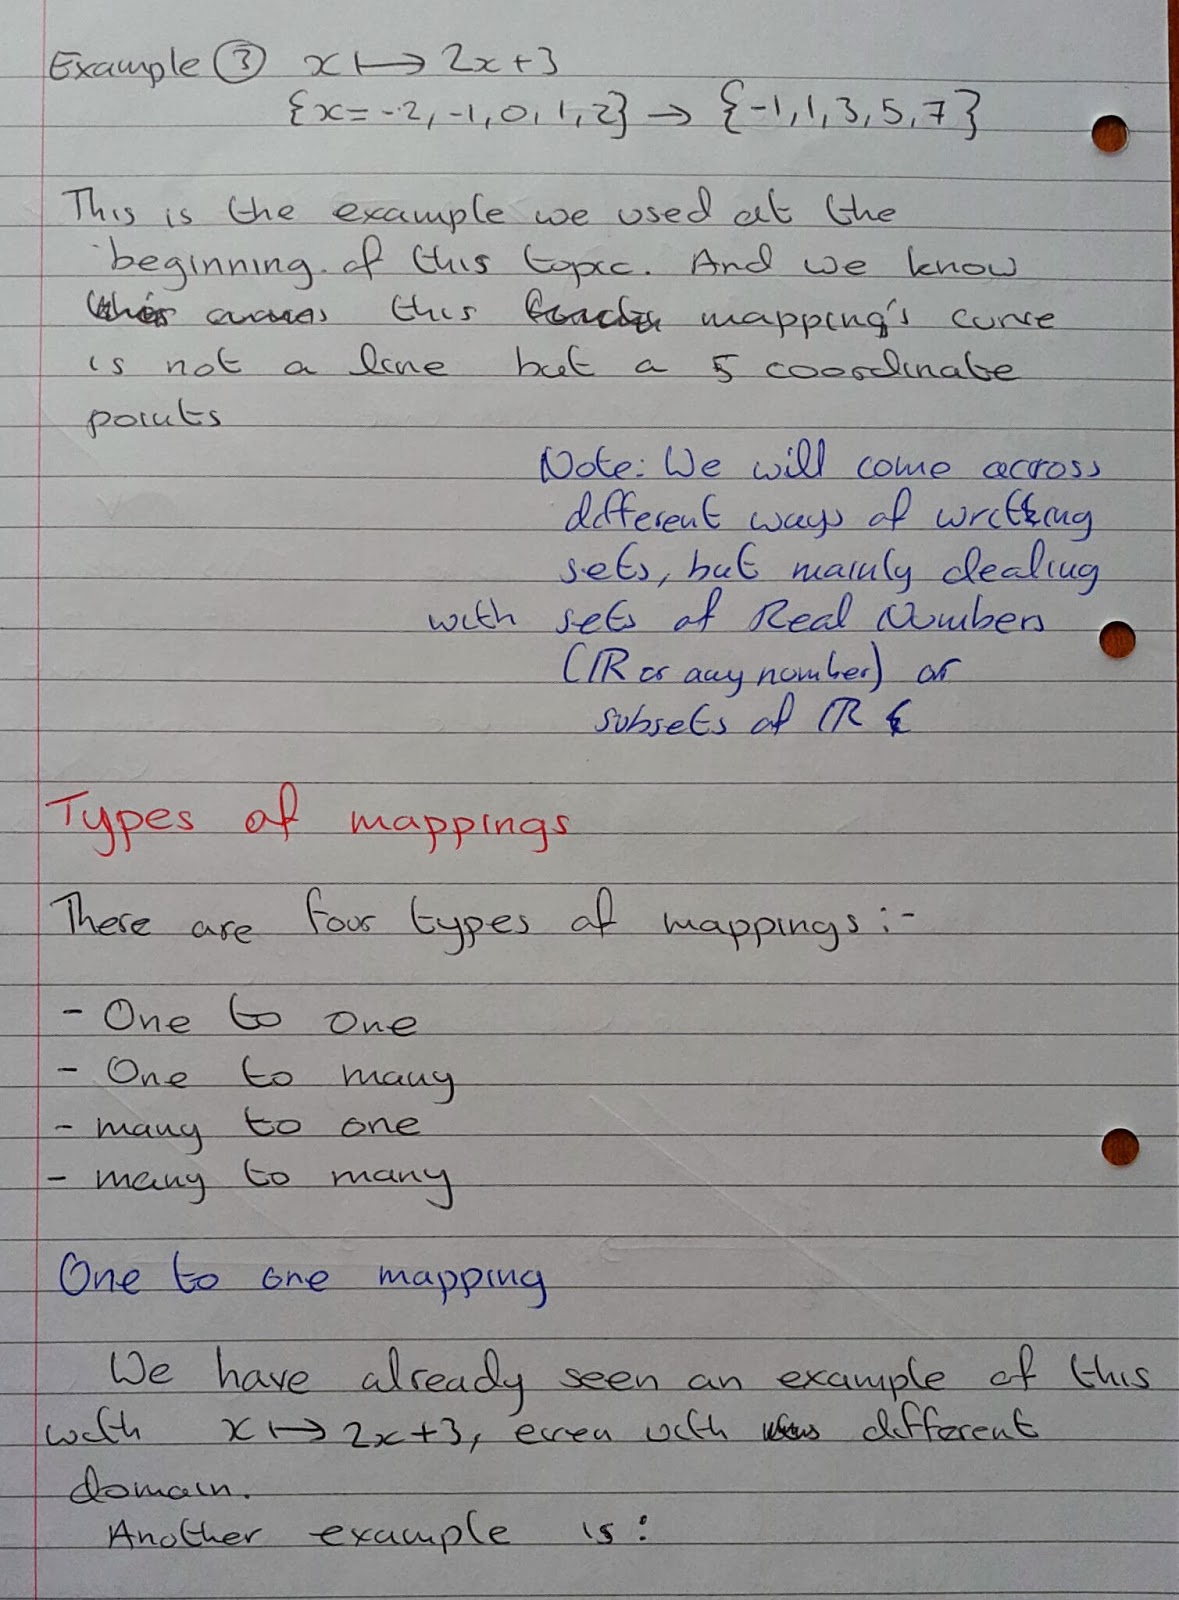 Example ③ x ↦ 2x+3
{x = -2, -1, 0, 1, 2} → {-1, 1, 3, 5, 7}
This is the example we used at the
beginning of this topic. And we know
this mapping's curve
is not a line but a 5 coordinate
points
Note: We will come across
different ways of writting
sets, but mainly dealing
with sets of Real Numbers
(ℝ or any number) or
subsets of ℝ
Types of mappings
There are four types of mappings:-
- One to one
- One to many
- many to one
- many to many
One to one mapping
We have already seen an example of this
with x ↦ 2x+3, even with different
domain.
Another example is: